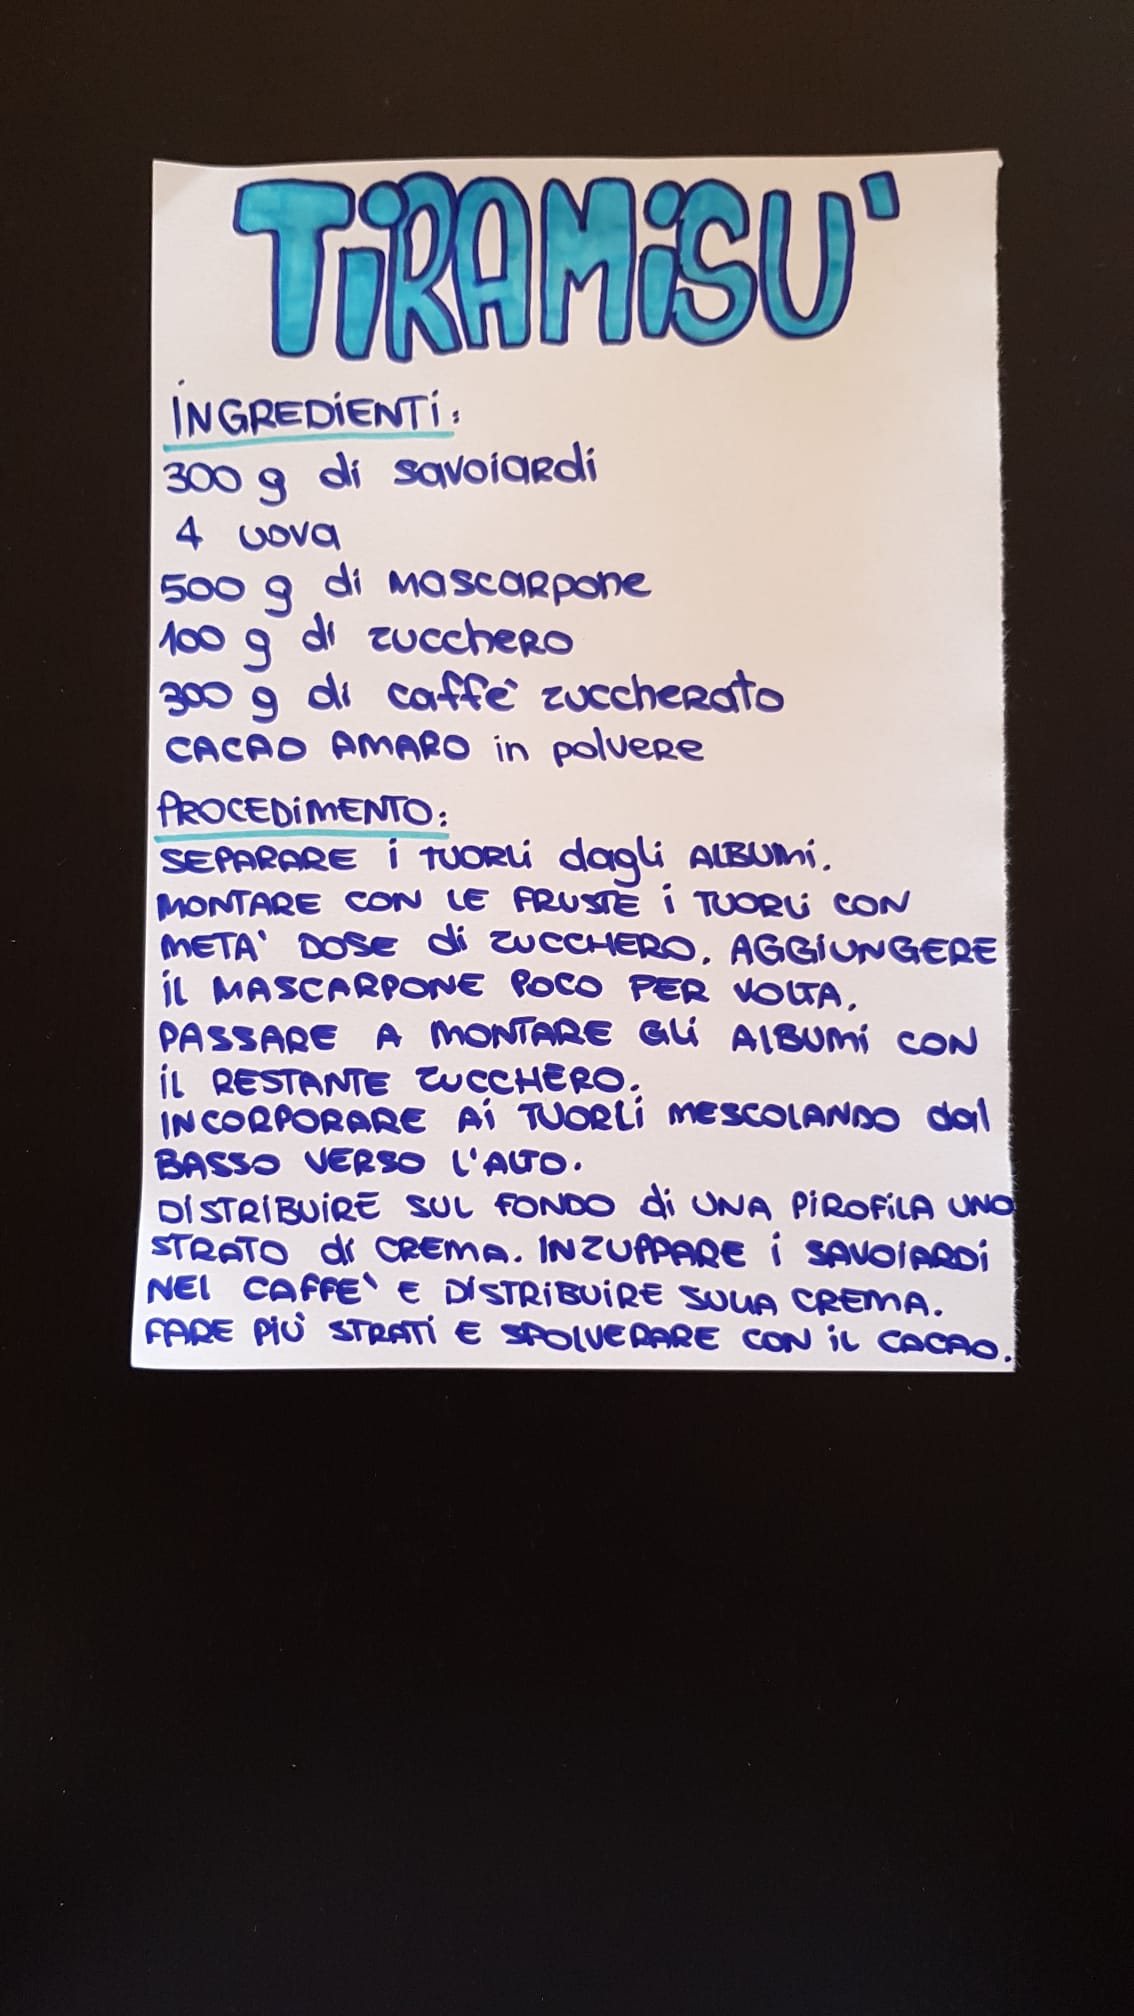 TiRAMiSU'
iNGREDiENTi:
300 g di savoiaRdi
4 uova
500 g di MascaRpone
100 g di zuccheRo
300 g di caffe' zuccheRato
CACAO AMARO in polveRe
PROCEDiMENTO:
SEPARARE i TUORLi dagli ALBUMi.
MONTARE CON LE FRUSTE i TUORLi CON
META' DOSE di ZUCCHERO. AGGiUNGERE
iL MASCARPONE POCO PER VOLTA.
PASSARE A MONTARE GLi ALBUMi CON
iL RESTANTE ZUCCHERO.
INCORPORARE Ai TUORLi MESCOLANDO dal
BASSO VERSO L'ALTO.
DiSTRiBUiRE SUL FONDO di UNA PiROFiLA UNO
STRATO di CREMA. INZUPPARE i SAVOIARDi
NEL CAFFE' E DiSTRiBUiRE SULLA CREMA.
FARE PIÙ STRATi E SPOLVERARE CON iL CACAO.